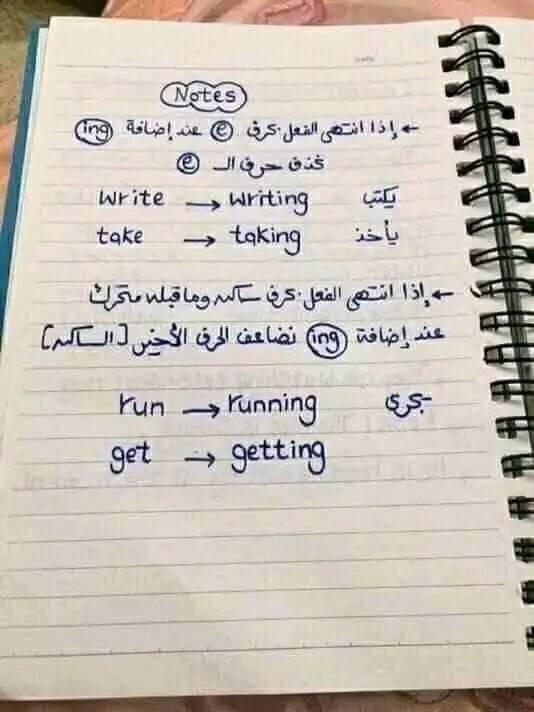 Notes
← إذا انتهى الفعل بحرف e عند إضافة ing
نحذف حرف الـ e
write → writing يكتب
take → taking يأخذ
← إذا انتهى الفعل بحرف ساكن وما قبله متحرك
عند إضافة ing نضاعف الحرف الأخير [الساكن]
run → running يجري
get → getting